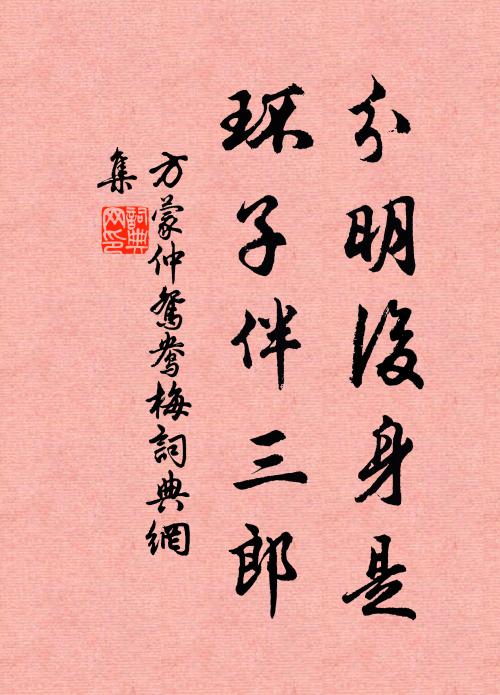 分明後身是
环子伴三郎
方蒙仲鴛鴦梅詞典網
集
詞典
网印